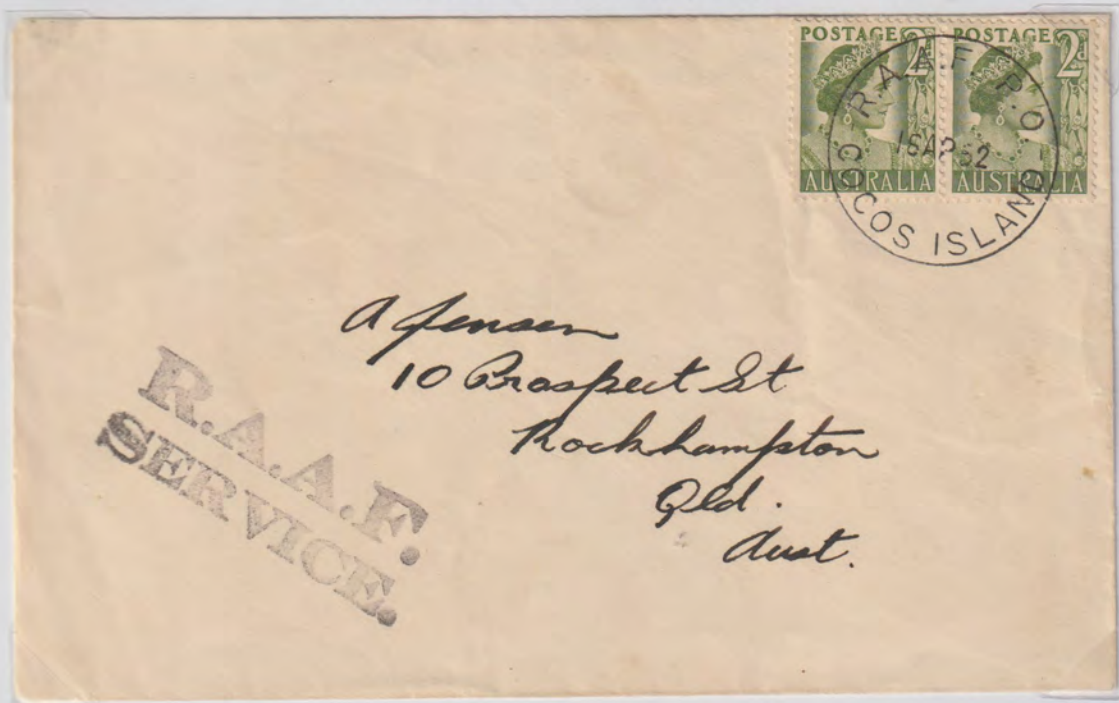 POSTAGE 2d POSTAGE 2d
AUSTRALIA AUSTRALIA
R.A.A.F. P.O.
COCOS ISLAND
A Jensen
10 Prospect St
Rockhampton
Qld.
Aust.
R.A.A.F.
SERVICE.